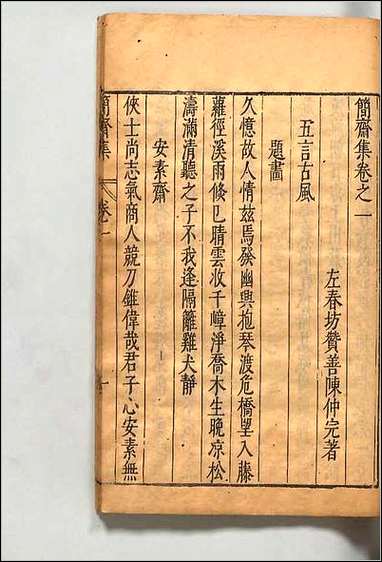 簡齋集卷之一
左春坊贊善陳仲完著
五言古風
題畫
久憶故人情茲焉發幽興抱琴渡危橋望入藤
蘿徑溪雨倏已晴雲收千嶂淨喬木生晚凉松
濤滿清聽之子不我逢隔籬雞犬靜
安素齋
俠士尚志氣商人競刀錐偉哉君子心安素無
簡齋集
卷一
一